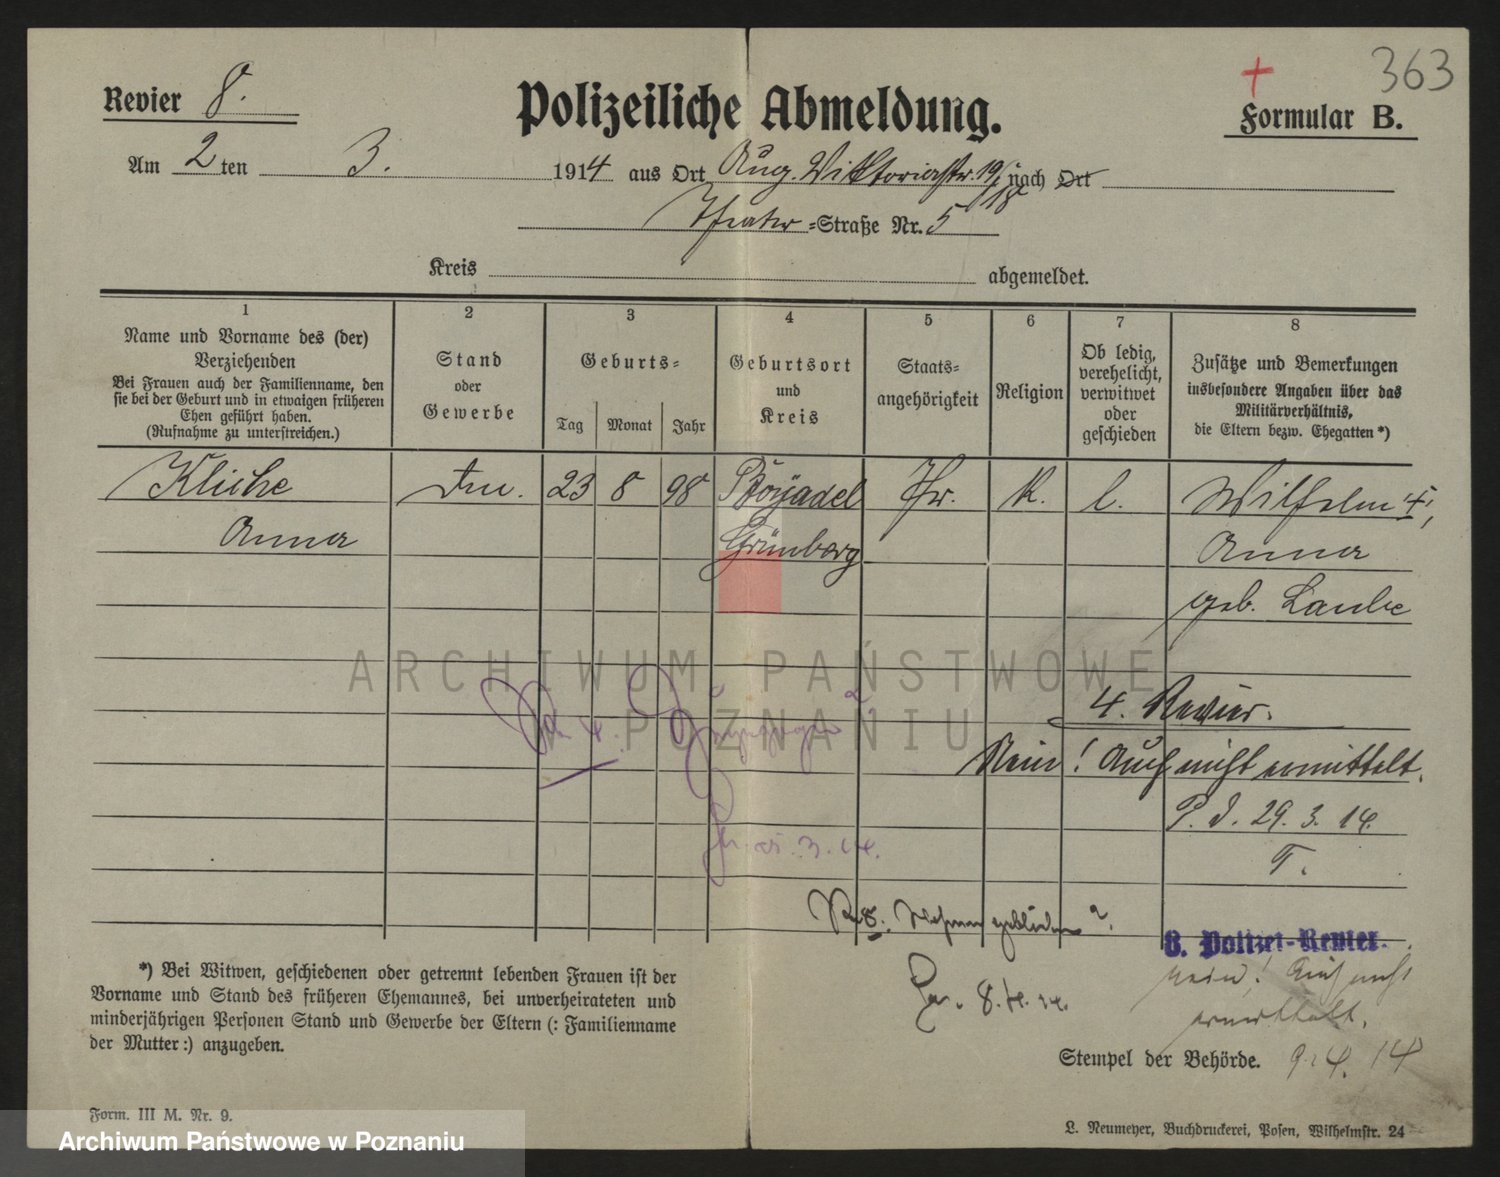 363
Revier 8.
Polizeiliche Abmeldung.
Formular B.
Am 2 ten 3. 1914 aus Ort Aug. Viktoriastr. 19/18 nach Ort
Theater-Straße Nr. 5
Kreis abgemeldet.
1 2 3 4 5 6 7 8
Name und Vorname des (der)
Verziehenden
Bei Frauen auch der Familienname, den
sie bei der Geburt und in etwaigen früheren
Ehen geführt haben.
(Rufnahme zu unterstreichen.)
Stand
oder
Gewerbe
Geburts-
Tag Monat Jahr
Geburtsort
und
Kreis
Staats-
angehörigkeit
Religion
Ob ledig,
verehelicht,
verwitwet
oder
geschieden
Zusätze und Bemerkungen
insbesondere Angaben über das
Militärverhältnis,
die Eltern bezw. Ehegatten *)
23 8 98 Boyadel Pr. K. l. Wilhelm †,
Anna Grünberg Anna
geb. Laube
4. Revier.
Nein! Auch nicht ermittelt.
P. J. 29. 3. 14.
T.
3. 14.
8.
8. Polizei-Revier.
8. 4. 14.
Nein! Auch nicht
ermittelt.
9. 4. 14
Stempel der Behörde.
*) Bei Witwen, geschiedenen oder getrennt lebenden Frauen ist der
Vorname und Stand des früheren Ehemannes, bei unverheirateten und
minderjährigen Personen Stand und Gewerbe der Eltern (: Familienname
der Mutter:) anzugeben.
Form. III M. Nr. 9.
L. Neumeyer, Buchdruckerei, Posen, Wilhelmstr. 24
ARCHIWUM PAŃSTWOWE
W POZNANIU
Archiwum Państwowe w Poznaniu